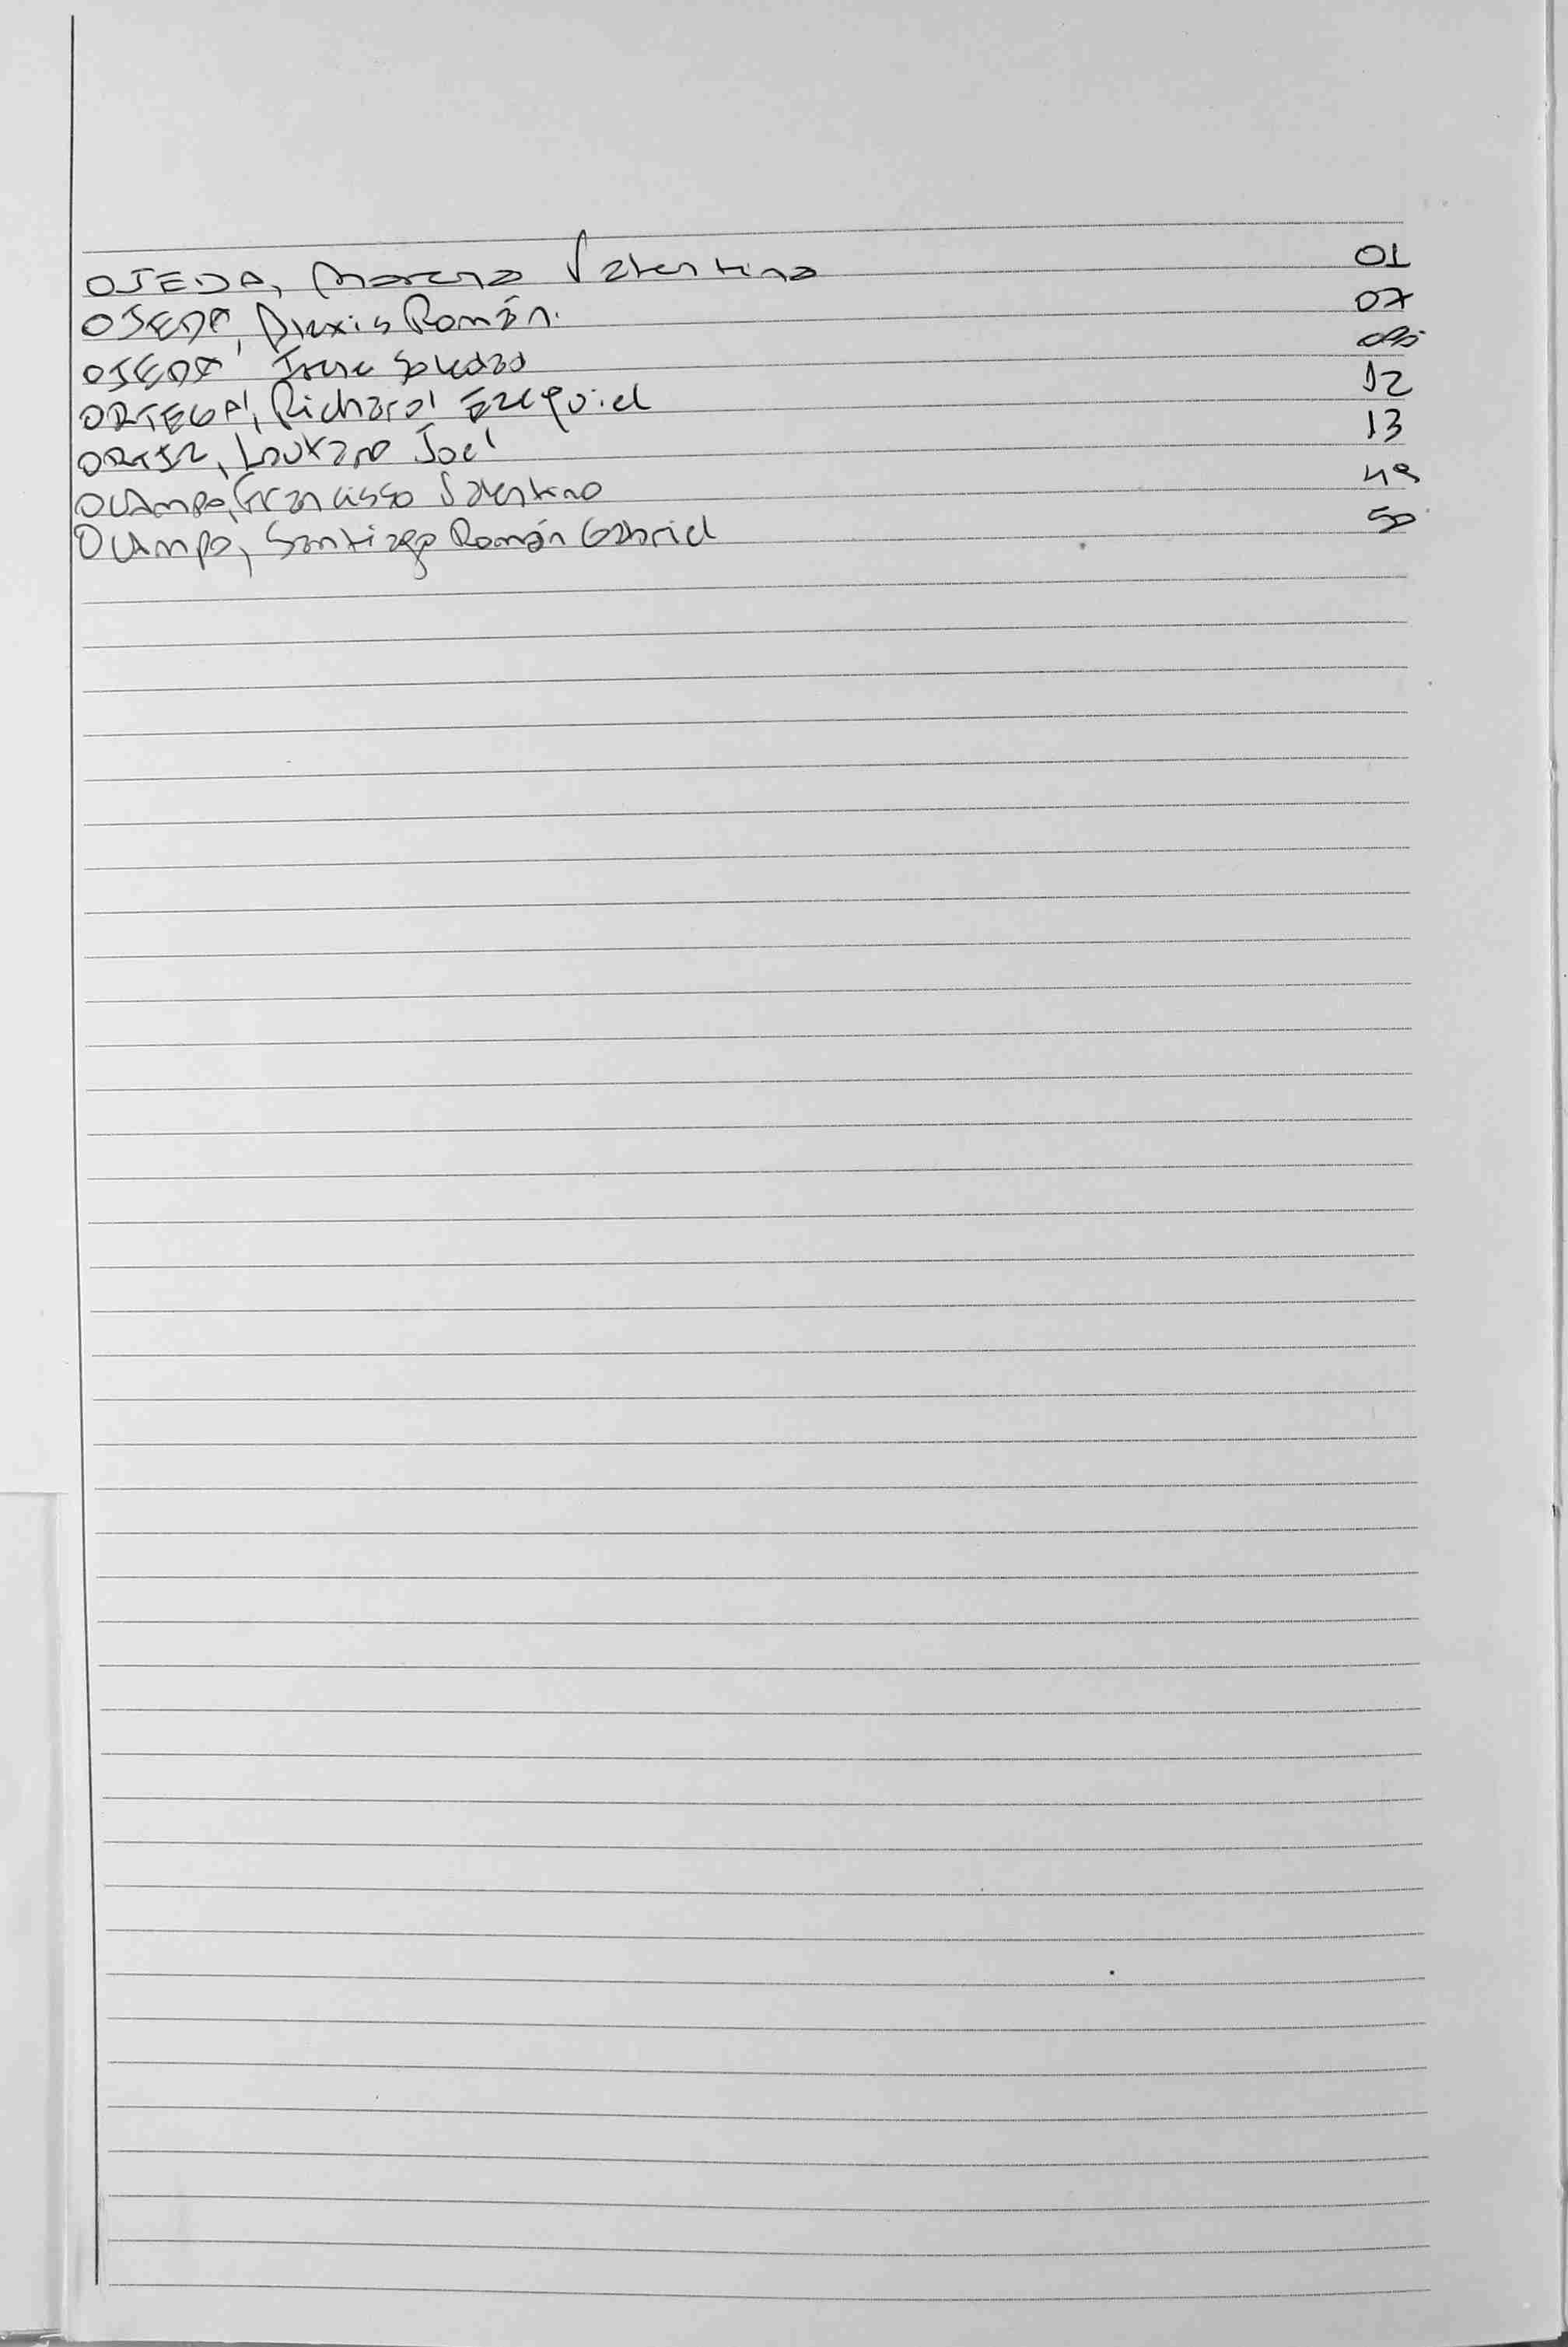 OJEDA, Morena Valentina 01
OJEDA, Alexis Román. 07
OJEDA, Irene Soledad
ORTEGA, Richard Ezequiel 12
ORTIZ, Lautaro Joel 13
OCAmpo, Francisco Valentino 49
OCAmpo, Santiago Román Gabriel 50